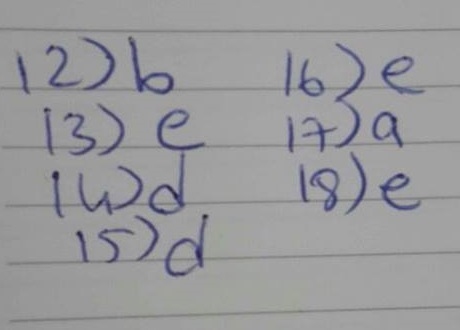 12) b
13) e
14) d
15) d
16) e
17) a
18) e